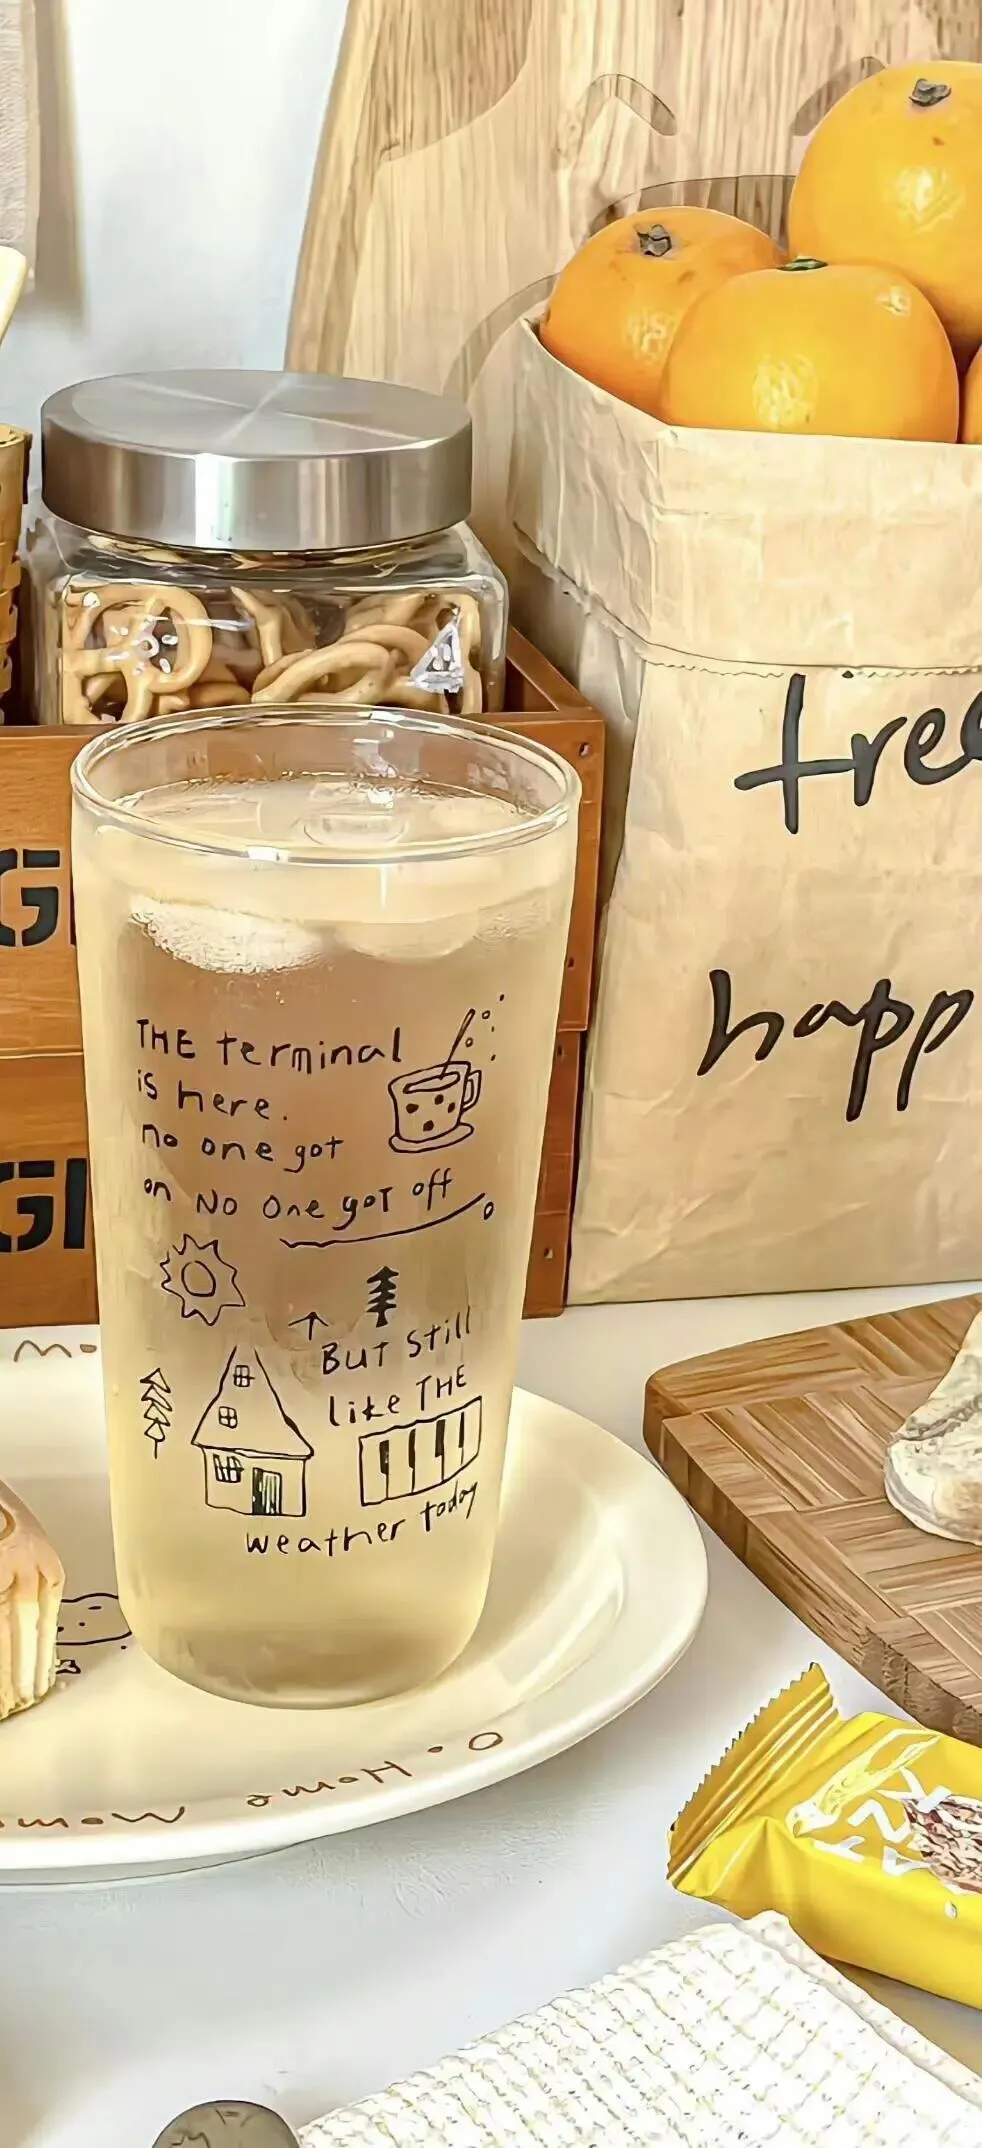 THE terminal
is here.
no one got
on No One got off
But still
like THE
weather today
free
happ
GI
GI
Home